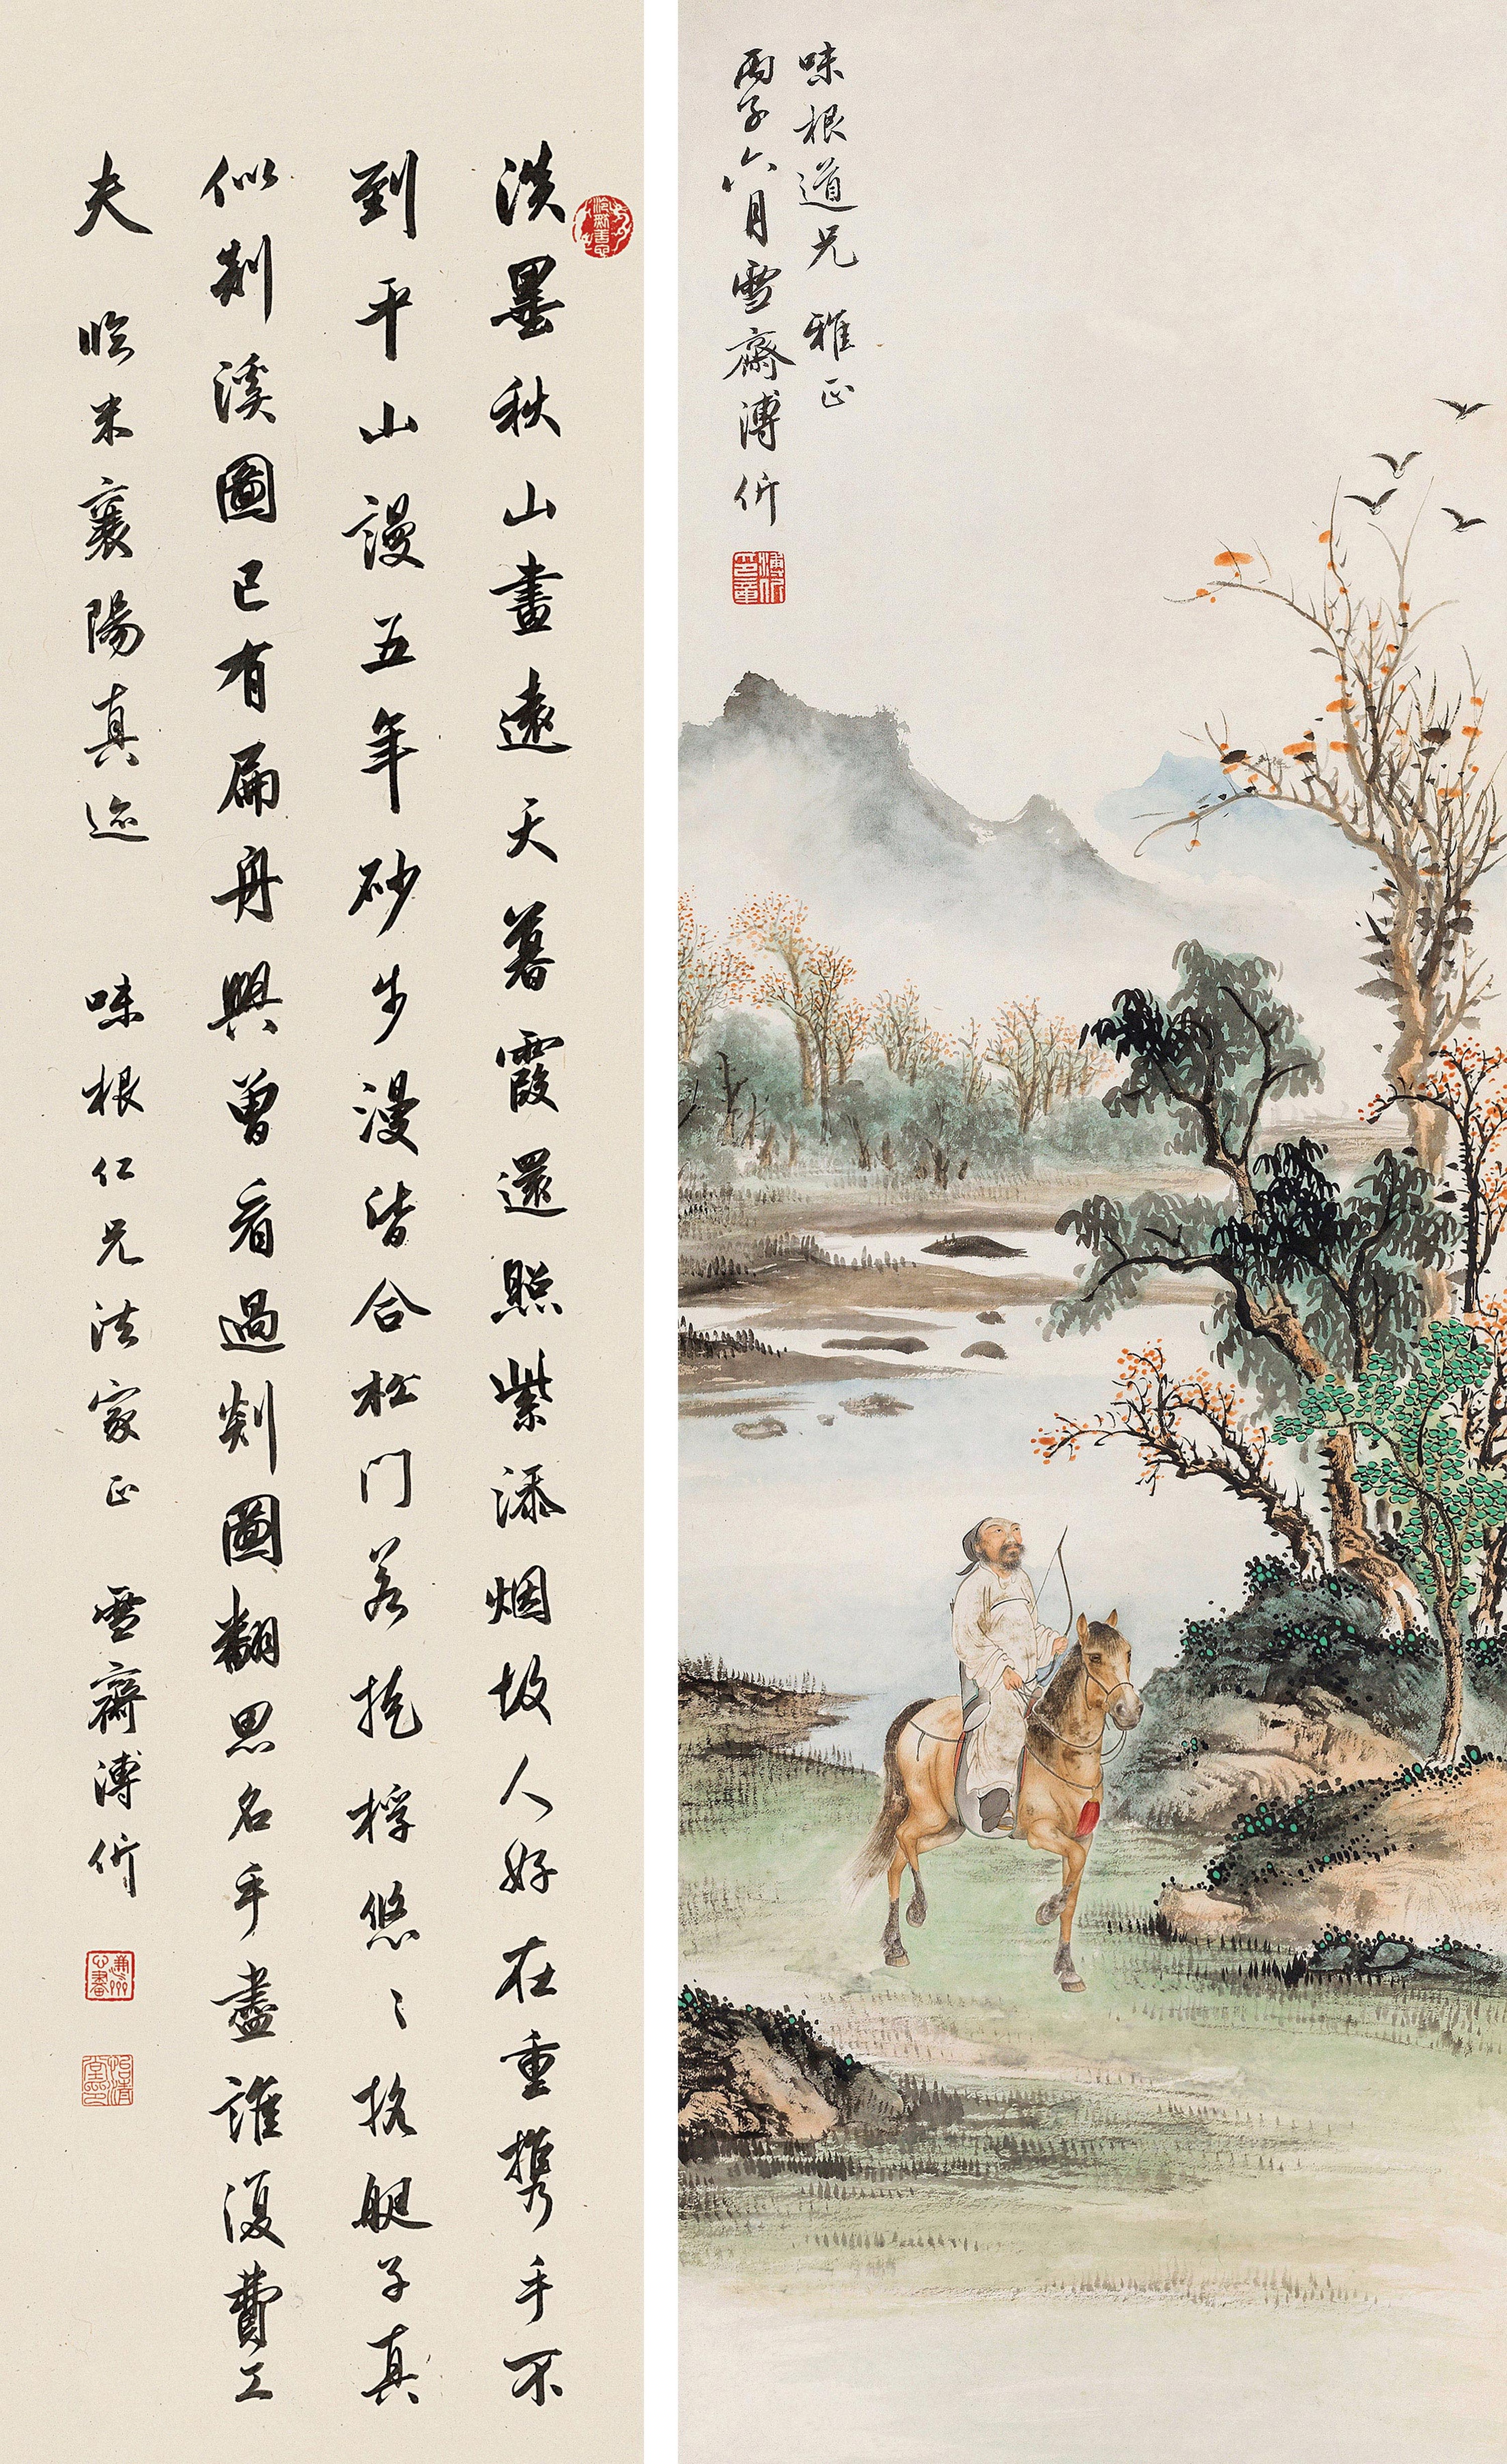 淡墨秋山畫遠天暮霞還照紫添烟故人好在重攜手不
到平山謾五年砂步漫皆合松門若掩桴悠〻搖艇子真
似剡溪圖已有扁舟興曾看過剡圖翻思名手盡誰復費工
夫 臨米襄陽真迹 味根仁兄法家正 雪齋溥伒
味根道兄 雅正
丙子六月雪齋溥伒
溥伒印章